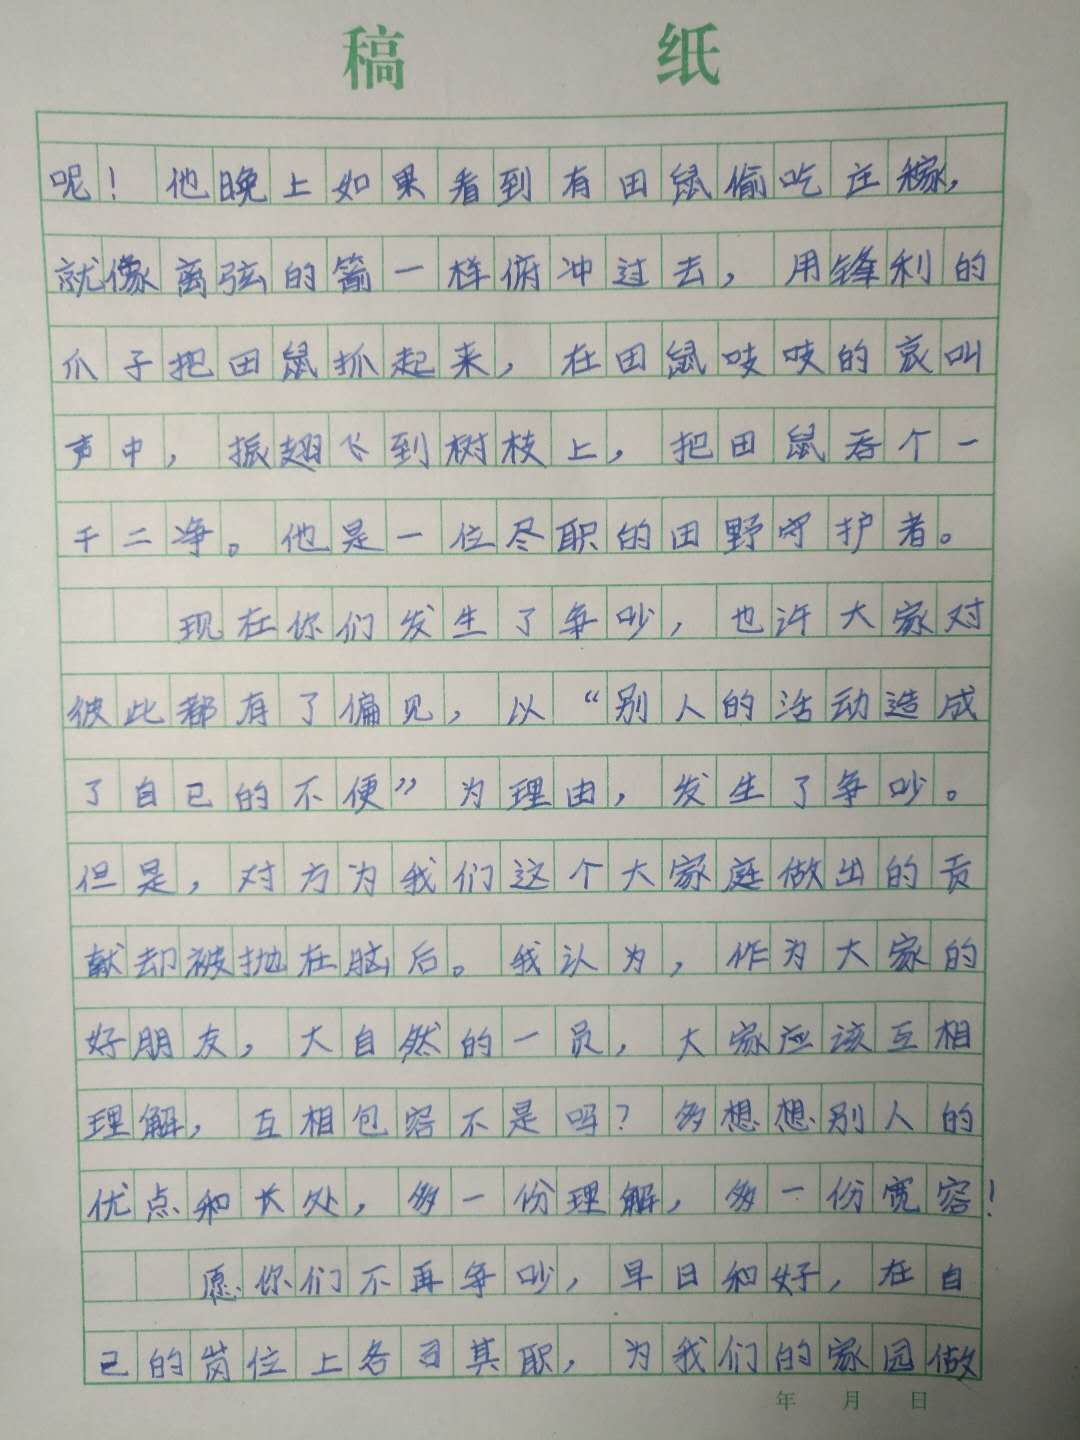 稿 纸
呢！他晚上如果看到有田鼠偷吃庄稼，
就像离弦的箭一样俯冲过去，用锋利的
爪子把田鼠抓起来，在田鼠吱吱的哀叫
声中，振翅飞到树枝上，把田鼠吞个一
干二净。他是一位尽职的田野守护者。
现在你们发生了争吵，也许大家对
彼此都有了偏见，以“别人的活动造成
了自己的不便”为理由，发生了争吵。
但是，对方为我们这个大家庭做出的贡
献却被抛在脑后。我认为，作为大家的
好朋友，大自然的一员，大家应该互相
理解，互相包容不是吗？多想想别人的
优点和长处，多一份理解，多一份宽容！
愿你们不再争吵，早日和好，在自
己的岗位上各司其职，为我们的家园做
年 月 日